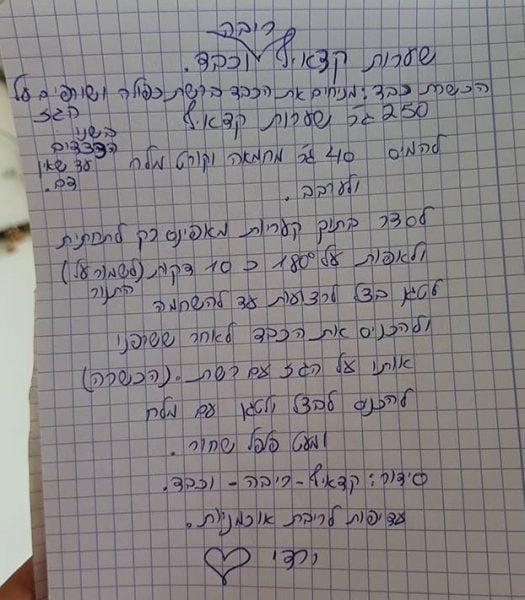 ריבה
שערות קדאיף וכבד.
הכשרת כבד: מניחים את הכבד ברשת כפולה ושורפים על הגז
250 גר שערות קדאיף
בשני הצדדים עד שאין דם.
להמיס 40 גר מחמאה וקורט מלח
ולערבב.
לסדר בתוך קערות מאפינס רק לתחתית
ולאפות על 180° כ 10 דקות (לשמור על התנור)
לטגן בצל לרצועות עד להשחמה
ולהכניס את הכבד לאחר ששרפנו
אותו על הגז עם רשת. (הכשרה)
להכניס לבצל ולטגן עם מלח
ומעט פלפל שחור.
סידור: קדאיף - ריבה - וכבד.
עדיפות לריבת אוכמניות.